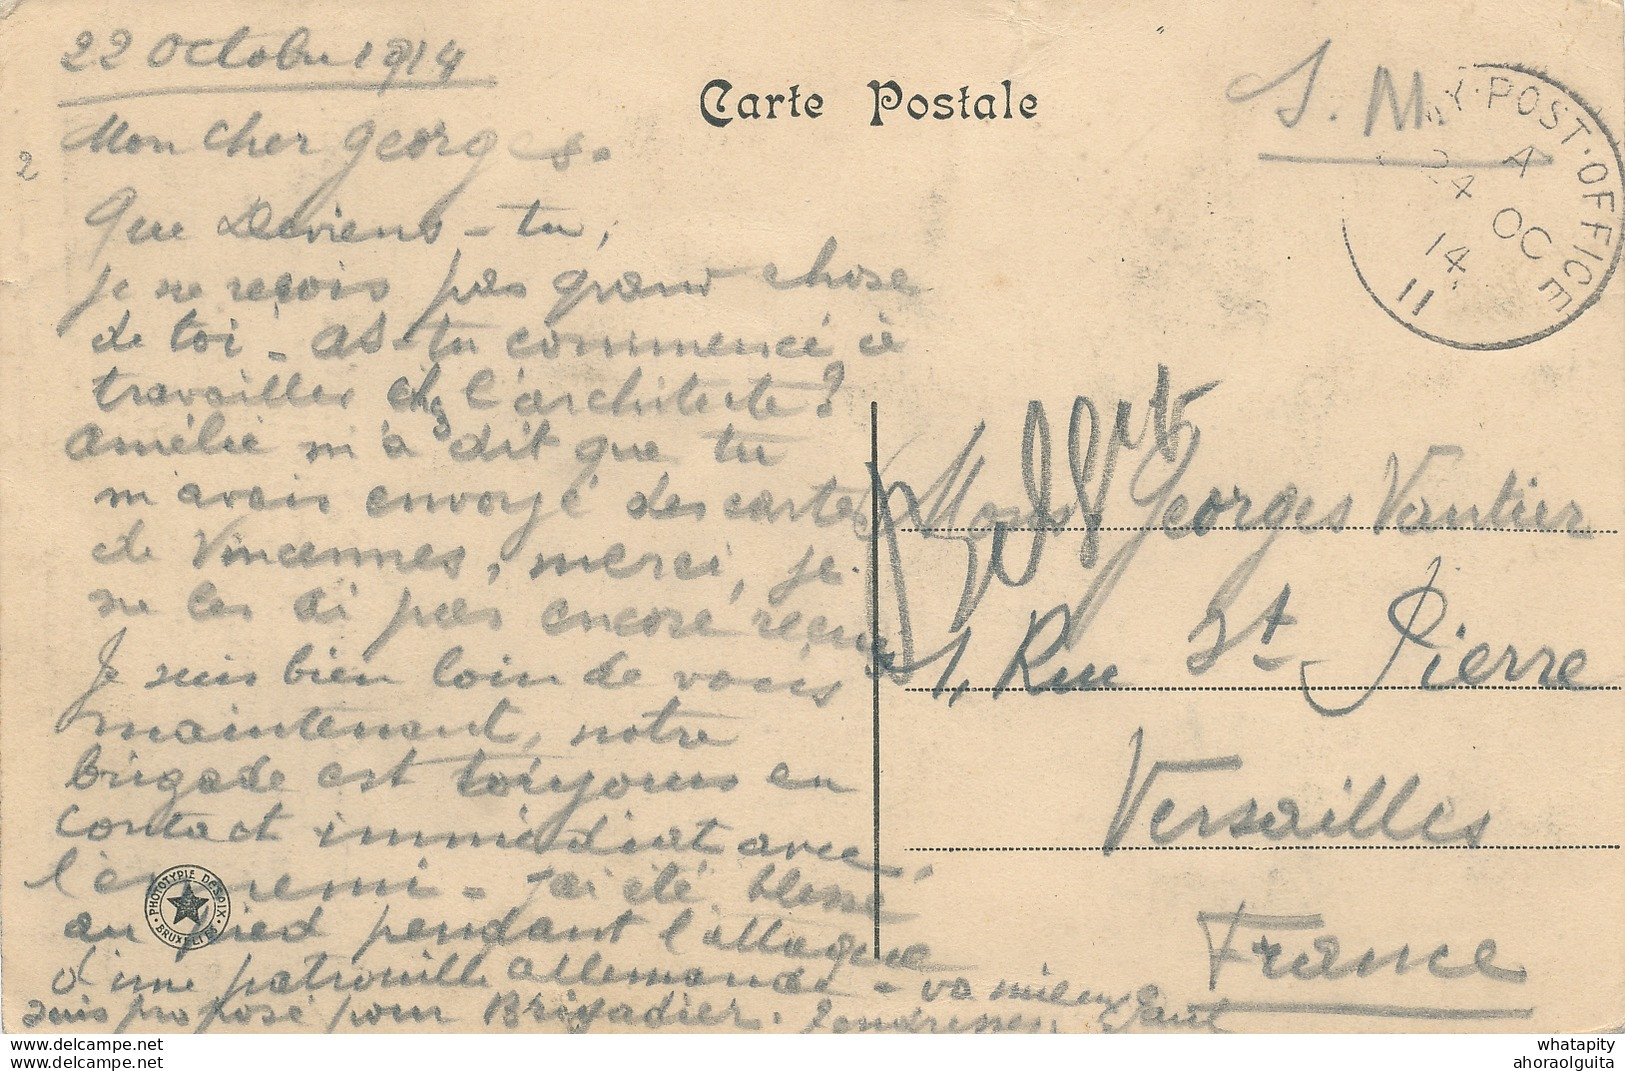 22 Octobre 1914
Carte Postale
S. M.
Y. POST. OFFICE
A
24 OC
14
E 11
Mon cher Georges.
2
Que Deviens-tu,
je ne reçois pas grand chose
de toi - as-tu commencé à
travailler chz l'architecte?
Amélie m'a dit que tu
m'avais envoyé des cartes
de Vincennes, merci, je
ne les ai pas encore reçues
Je suis bien loin de vous
maintenant, notre
brigade est toujours en
contact immédiat avec
l'ennemi - j'ai été blessé
au pied pendant l'attaque
d'une patrouille allemande - va mieux
suis proposé pour Brigadier. Tendresses.
PHOTOTYPIE DESAIX
BRUXELLES
Mons. Georges Vautier
1, Rue St Pierre
Versailles
France
whatapity
ahoraolguita